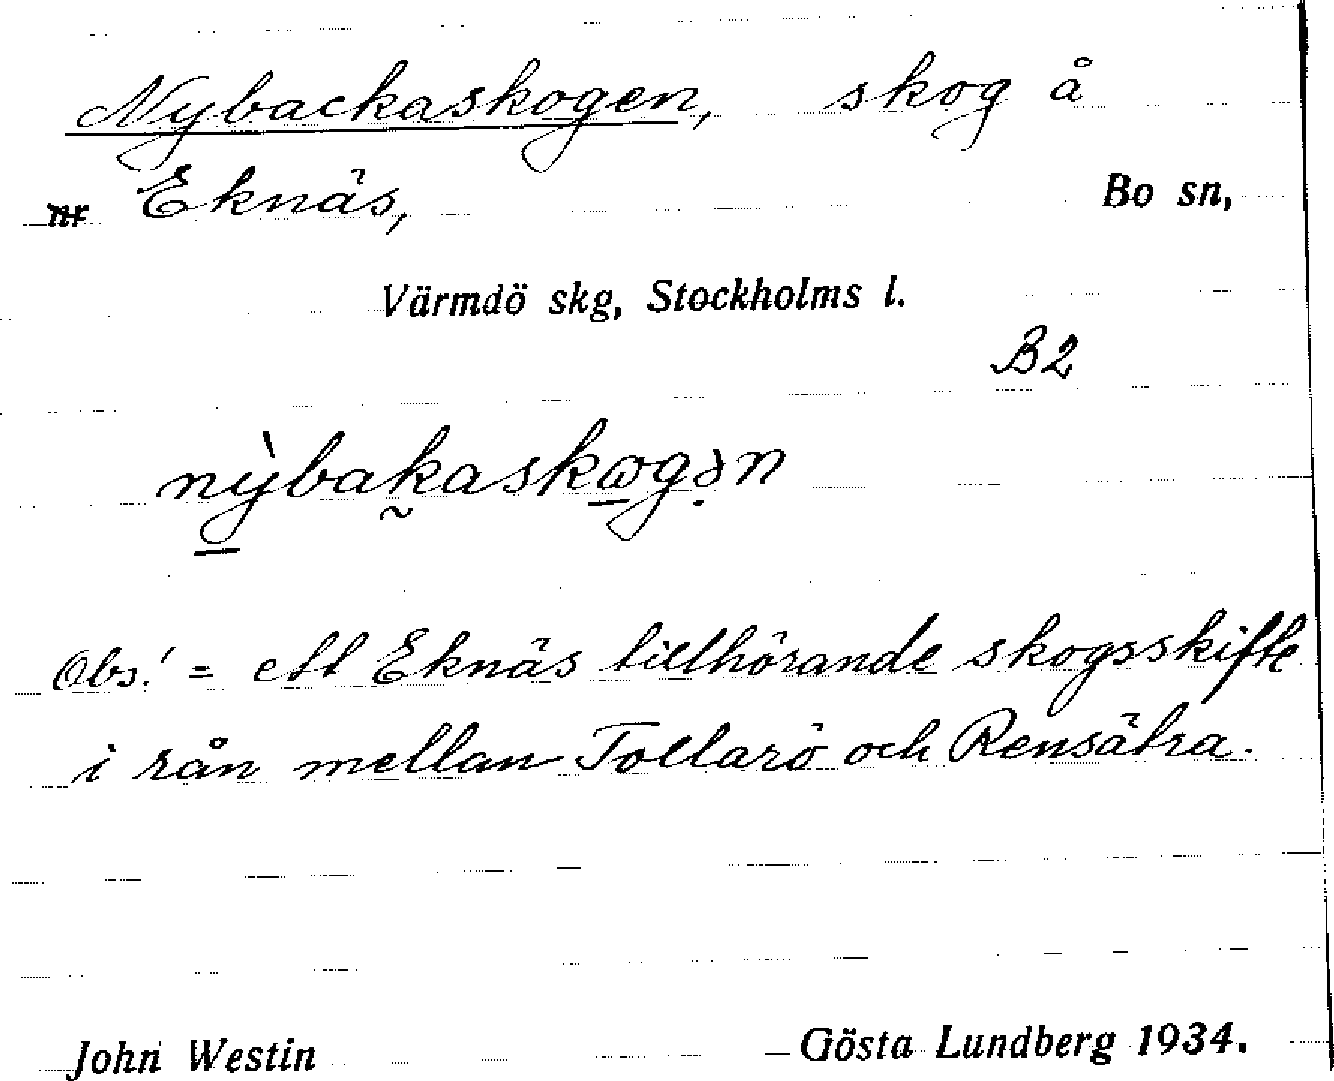 Nybackaskogen, skog å
Eknäs, Bo sn,
Värmdö skg, Stockholms l.
B2
nỳbakaskogən
Obs! = ett Eknäs tillhörande skogsskifte
i rån mellan Tollarö och Rensätra.
John Westin Gösta Lundberg 1934.